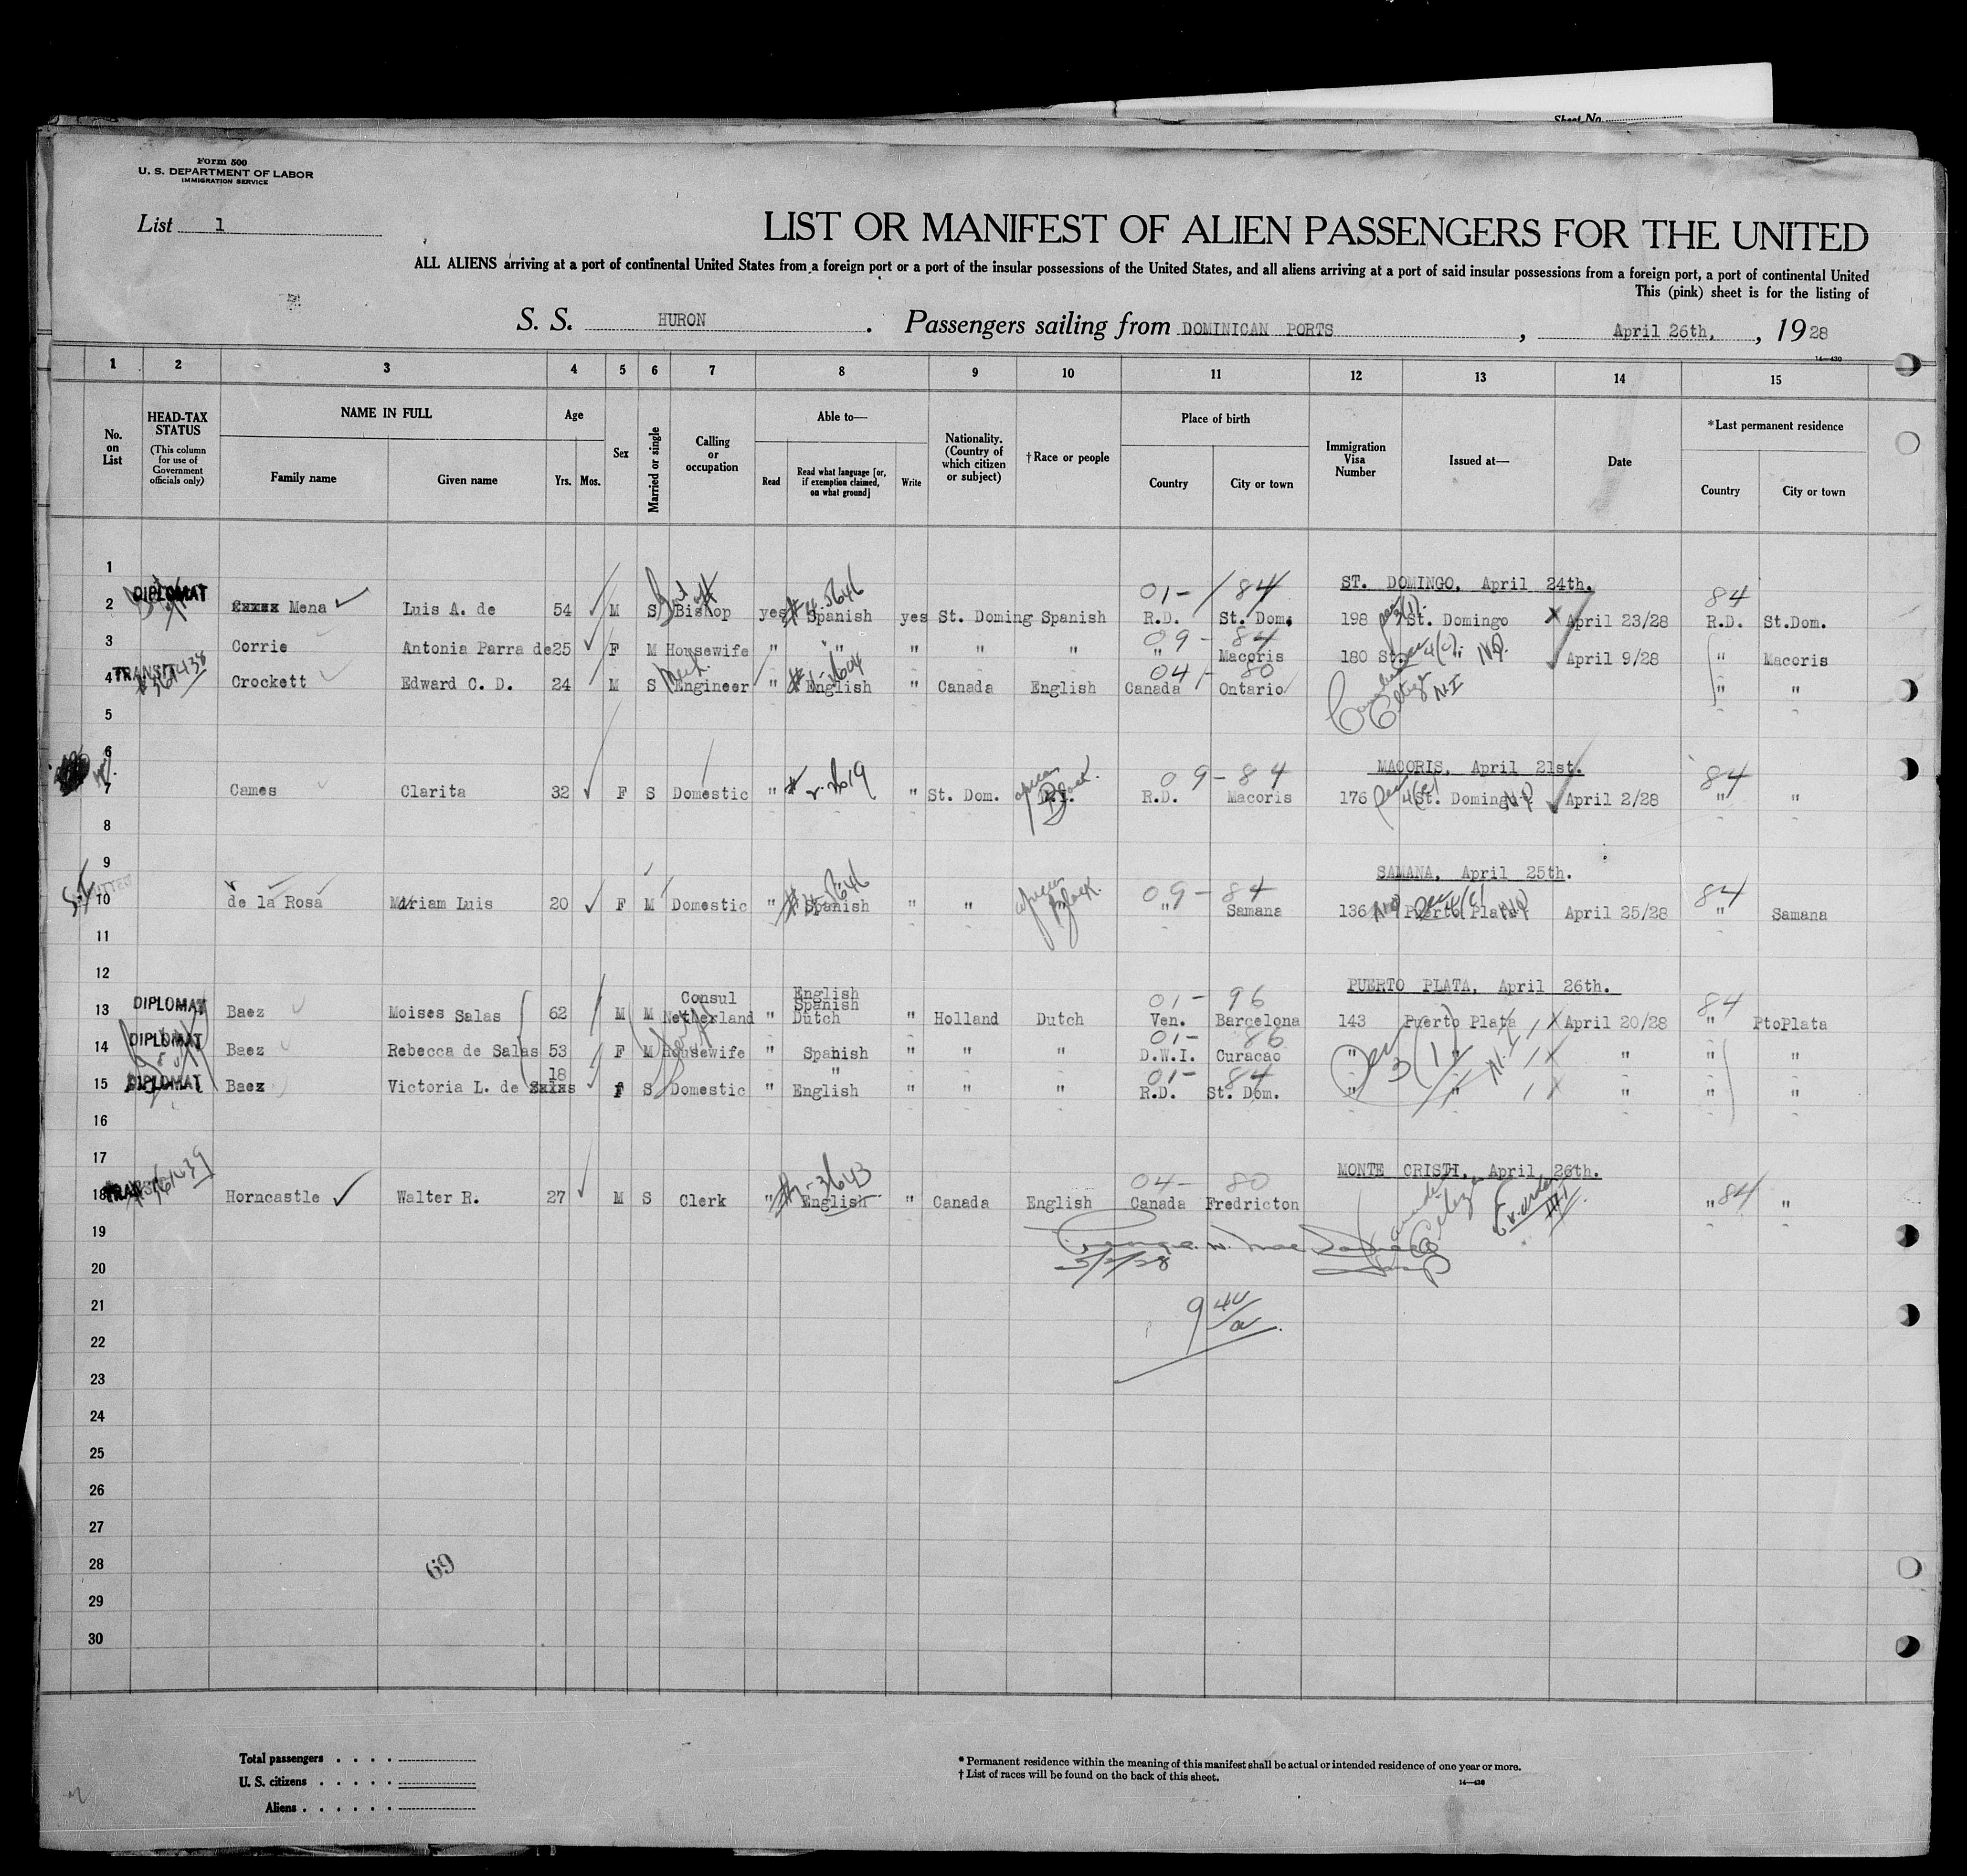 Sheet No.
Form 500
U. S. DEPARTMENT OF LABOR
IMMIGRATION SERVICE
List 1
LIST OR MANIFEST OF ALIEN PASSENGERS FOR THE UNITED
ALL ALIENS arriving at a port of continental United States from a foreign port or a port of the insular possessions of the United States, and all aliens arriving at a port of said insular possessions from a foreign port, a port of continental United
This (pink) sheet is for the listing of
S. S. HURON. Passengers sailing from DOMINICAN PORTS, April 26th, , 1928
14—430
1 2 3 4 5 6 7 8 9 10 11 12 13 14 15
No. on List
HEAD-TAX STATUS
(This column for use of Government officials only)
NAME IN FULL
Family name Given name
Age
Yrs. Mos.
Sex
Married or single
Calling or occupation
Able to—
Read Read what language [or, if exemption claimed, on what ground] Write
Nationality. (Country of which citizen or subject)
†Race or people
Place of birth
Country City or town
Immigration Visa Number
Issued at—
Date
*Last permanent residence
Country City or town
1
ST. DOMINGO, April 24th.
DIPLOMAT 01- 84 84
2 Mena Luis A. de 54 M S Bishop yes Spanish yes St. Doming Spanish R.D. St. Dom. 198 St. Domingo April 23/28 R.D. St.Dom.
09 - 84
3 Corrie Antonia Parra de 25 F M Housewife " " " " " " Macoris 180 St. " April 9/28 " Macoris
TRANSIT 04 - 80
4 Crockett Edward C. D. 24 M S Engineer " English " Canada English Canada Ontario " "
5
6
MACORIS, April 21st.
09 - 84 84
7 Cames Clarita 32 F S Domestic " " St. Dom. R.D. Macoris 176 St. Domingo April 2/28 " "
8
9
SAMANA, April 25th.
09 - 84 84
10 de la Rosa Mariam Luis 20 F M Domestic " Spanish " " " Samana 136 Puerto Plata April 25/28 " Samana
11
12
PUERTO PLATA, April 26th.
DIPLOMAT Consul English Spanish 01 - 96 84
13 Baez Moises Salas 62 M M Netherland " Dutch " Holland Dutch Ven. Barcelona 143 Puerto Plata April 20/28 " PtoPlata
DIPLOMAT 01 - 86
14 Baez Rebecca de Salas 53 F M Housewife " Spanish " " " D.W.I. Curacao " " " " "
18 " 01- 84
15 DIPLOMAT Baez Victoria L. de F S Domestic " English " " " R.D. St. Dom. " " " " "
16
17
MONTE CRISTI, April 26th.
04- 80 84
18 Horncastle Walter R. 27 M S Clerk " English " Canada English Canada Fredricton " "
19
5/2/28
20
21
22
23
24
25
26
27
28 69
29
30
Total passengers
U. S. citizens
Aliens
* Permanent residence within the meaning of this manifest shall be actual or intended residence of one year or more.
† List of races will be found on the back of this sheet.